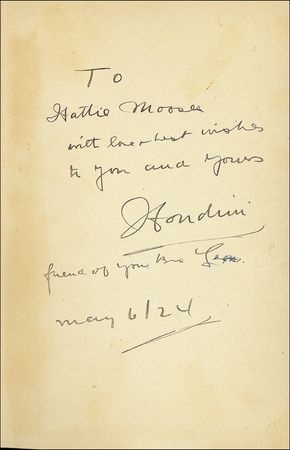 To
Hattie Mooser
with love & best wishes
to you and yours
Houdini
friend of your Bro Leon.
may 6/24